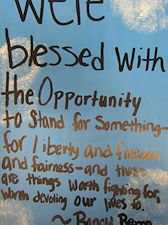 We're
blessed with
the Opportunity
to Stand for Something—
for liberty and freedom
and fairness—and these
are things worth fighting for,
worth devoting our lives to.
~ Ronald Reagan